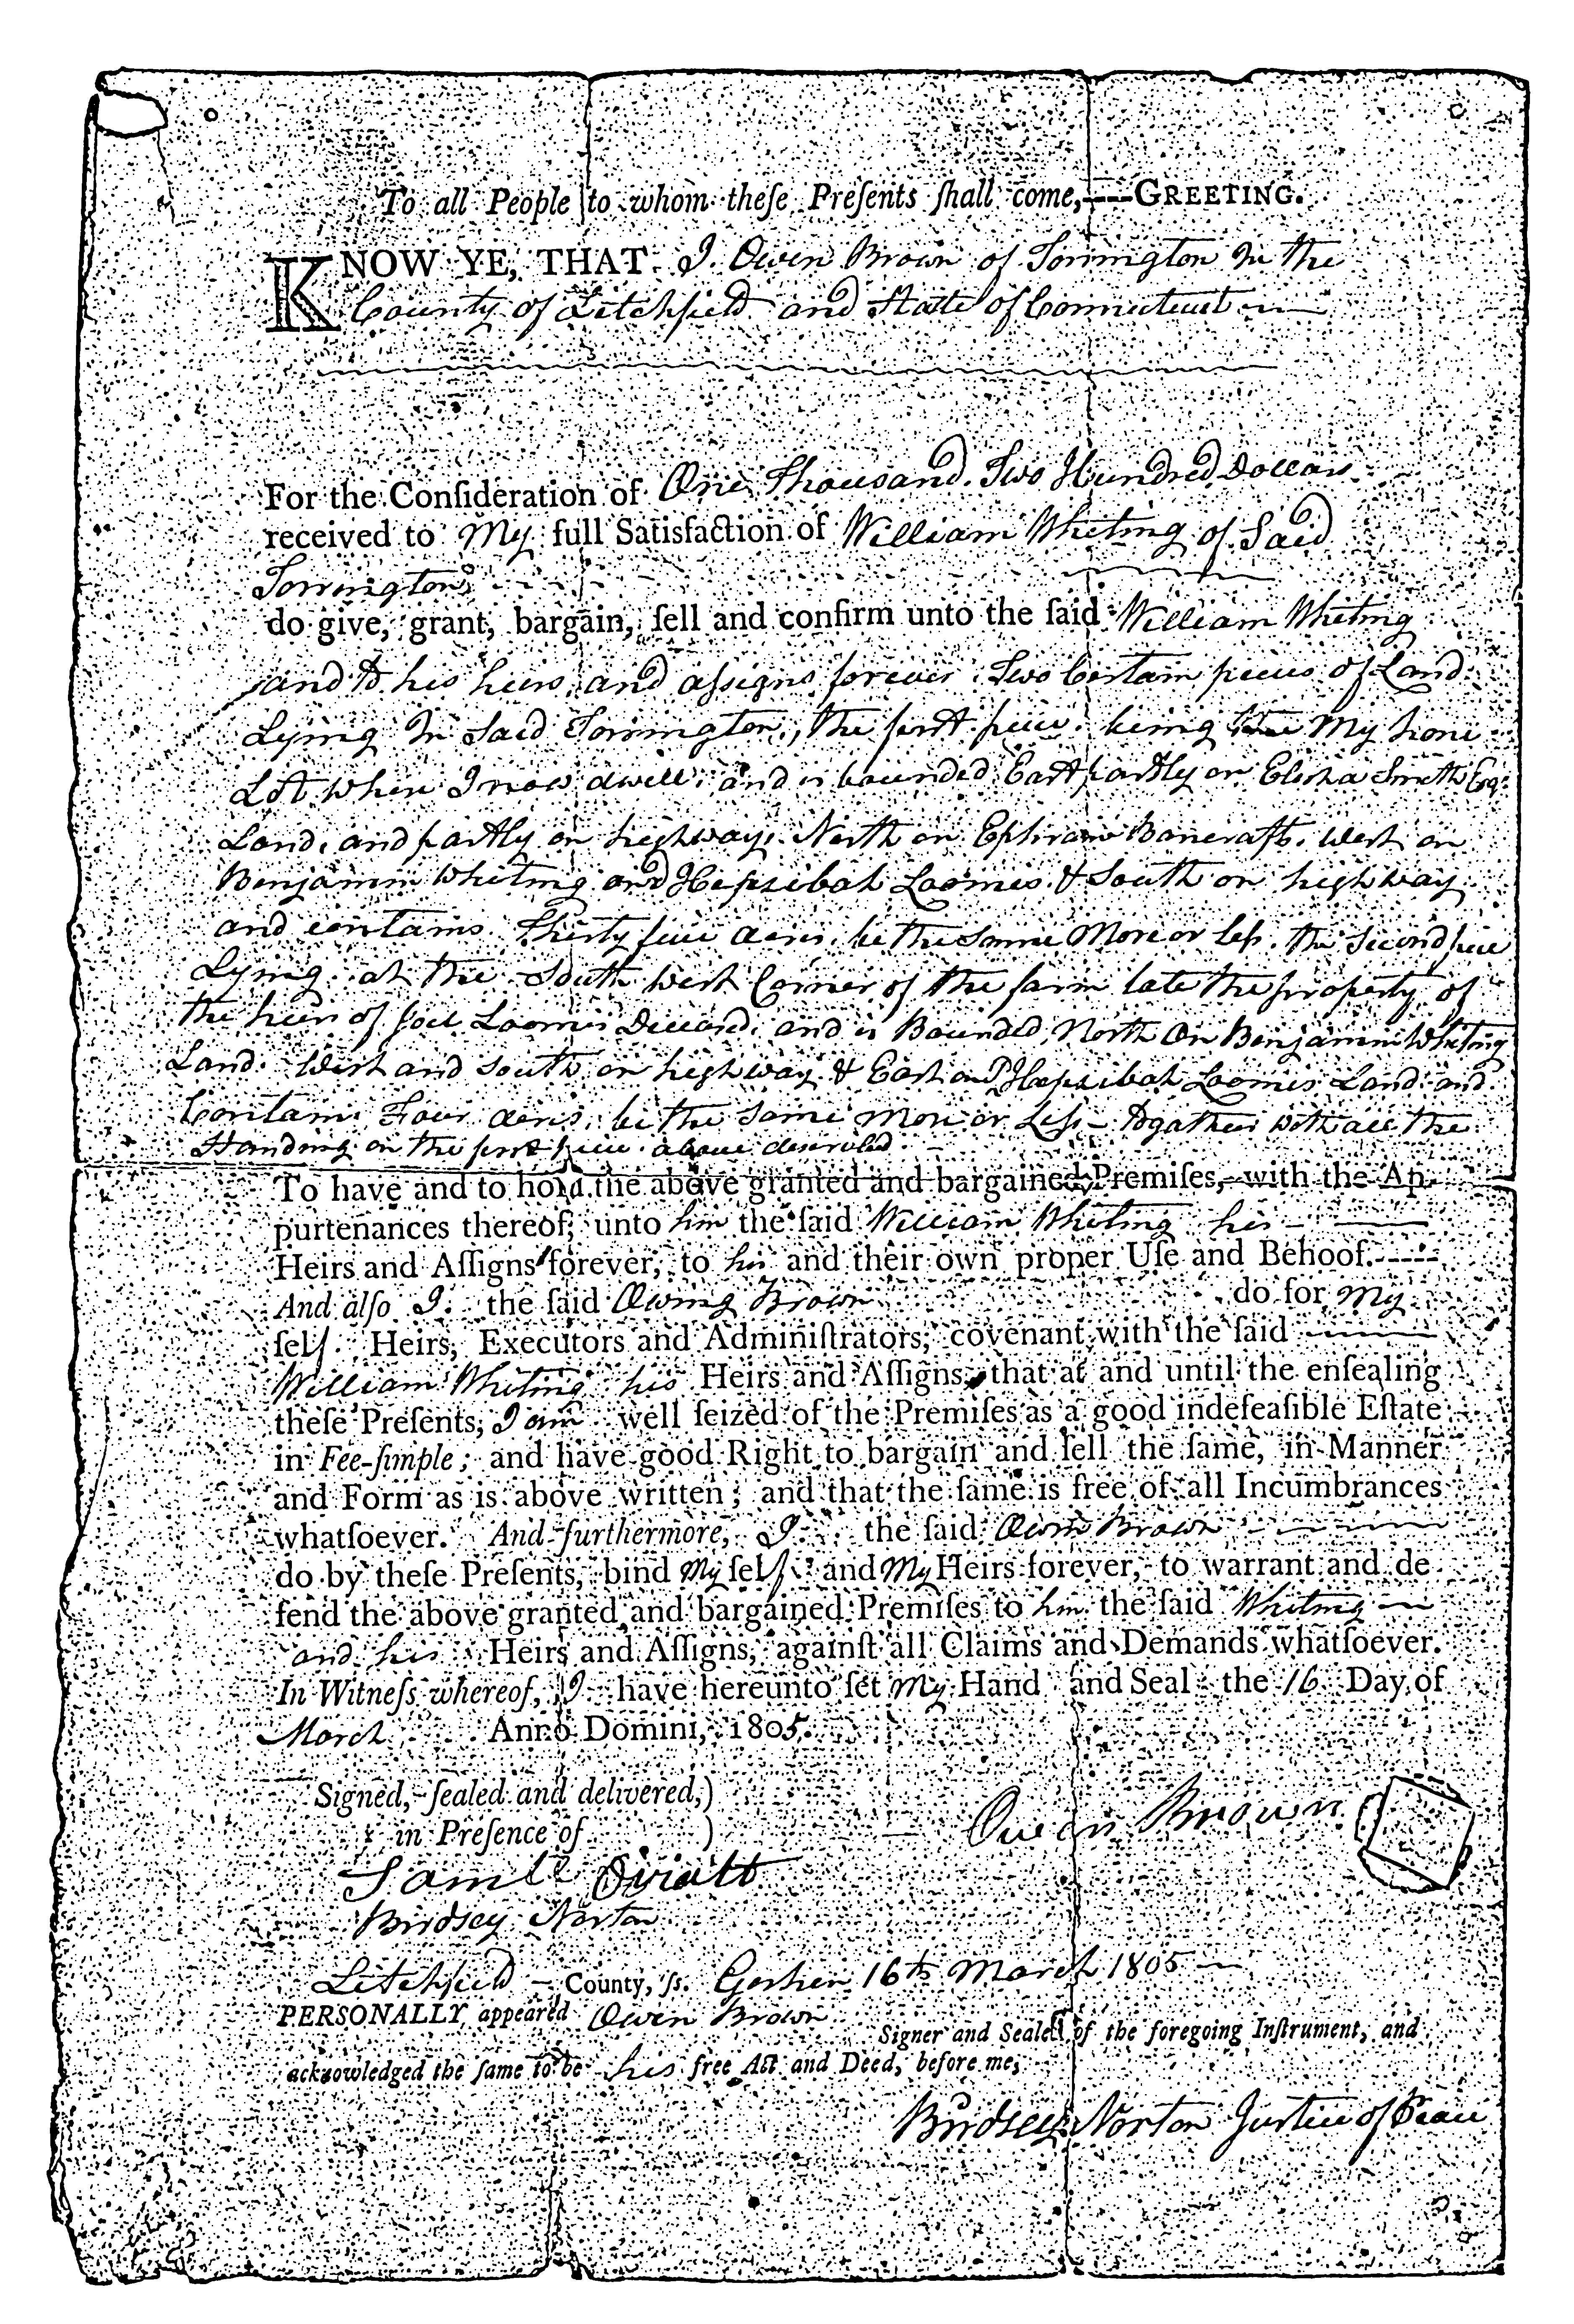 To all People to whom theſe Preſents ſhall come,----GREETING.
KNOW YE, THAT I. Owen Brown of Torrington In the
County of Litchfield and State of Connecticut
For the Conſideration of One Thousand Two Hundred Dollars
received to My full Satisfaction of William Whiting of Said
Torrington
do give, grant, bargain, ſell and confirm unto the ſaid William Whiting
and to his heirs, and aſsigns forever Two Certain pieces of Land
Lying In Said Torrington, the first piece being My home
Lot where I now dwell, and is bounded East partly on Elisha Smith Esqr.
Land, and partly on highway, North on Ephraim Bancraft, West on
Benjamin Whiting and Hepzibah Loomis & South on highway
and contains Thirty five acres, be the Same More or leſs. the Second piece
Lying at the South West Corner of the farm late the property of
the heirs of Joel Loomis Deceased, and is Bounded, North On Benjamin Whiting
Land. West and South on highway & East on Hepzibah Loomis Land and
Contains Four acres, be the same more or Leſs - Togather with all the
Standing on the first piece above described
To have and to hold the above granted and bargained Premiſes, with the Ap-
purtenances thereof, unto him the ſaid William Whiting his
Heirs and Aſſigns forever, to his and their own proper Uſe and Behoof.-----
And alſo I. the ſaid Owing Brown do for My
ſelf Heirs, Executors and Adminiſtrators, covenant with the ſaid
William Whiting his Heirs and Aſſigns, that at and until the enſealing
theſe Preſents, I am well ſeized of the Premiſes as a good indefeaſible Eſtate
in Fee-ſimple; and have good Right to bargain and ſell the ſame, in Manner
and Form as is above written; and that the ſame is free of all Incumbrances
whatſoever. And furthermore, I the ſaid Owin Brown
do by theſe Preſents, bind My ſelf and My Heirs forever, to warrant and de
fend the above granted and bargained Premiſes to him the ſaid Whiting
and his Heirs and Aſſigns, againſt all Claims and Demands whatſoever.
In Witneſs whereof, I have hereunto ſet My Hand and Seal the 16 Day of
March Anno Domini, 1805.
Signed, ſealed and delivered,)
in Preſence of )
Owen Brown
Samll Oviatt
Birdsey Norton
Litchfield - County, ſs. Goshen 16th March 1805
PERSONALLY appeared Owen Brown Signer and Sealer of the foregoing Inſtrument, and
acknowledged the ſame to be his free Act and Deed, before me,
Birdsey Norton Justice of Peace